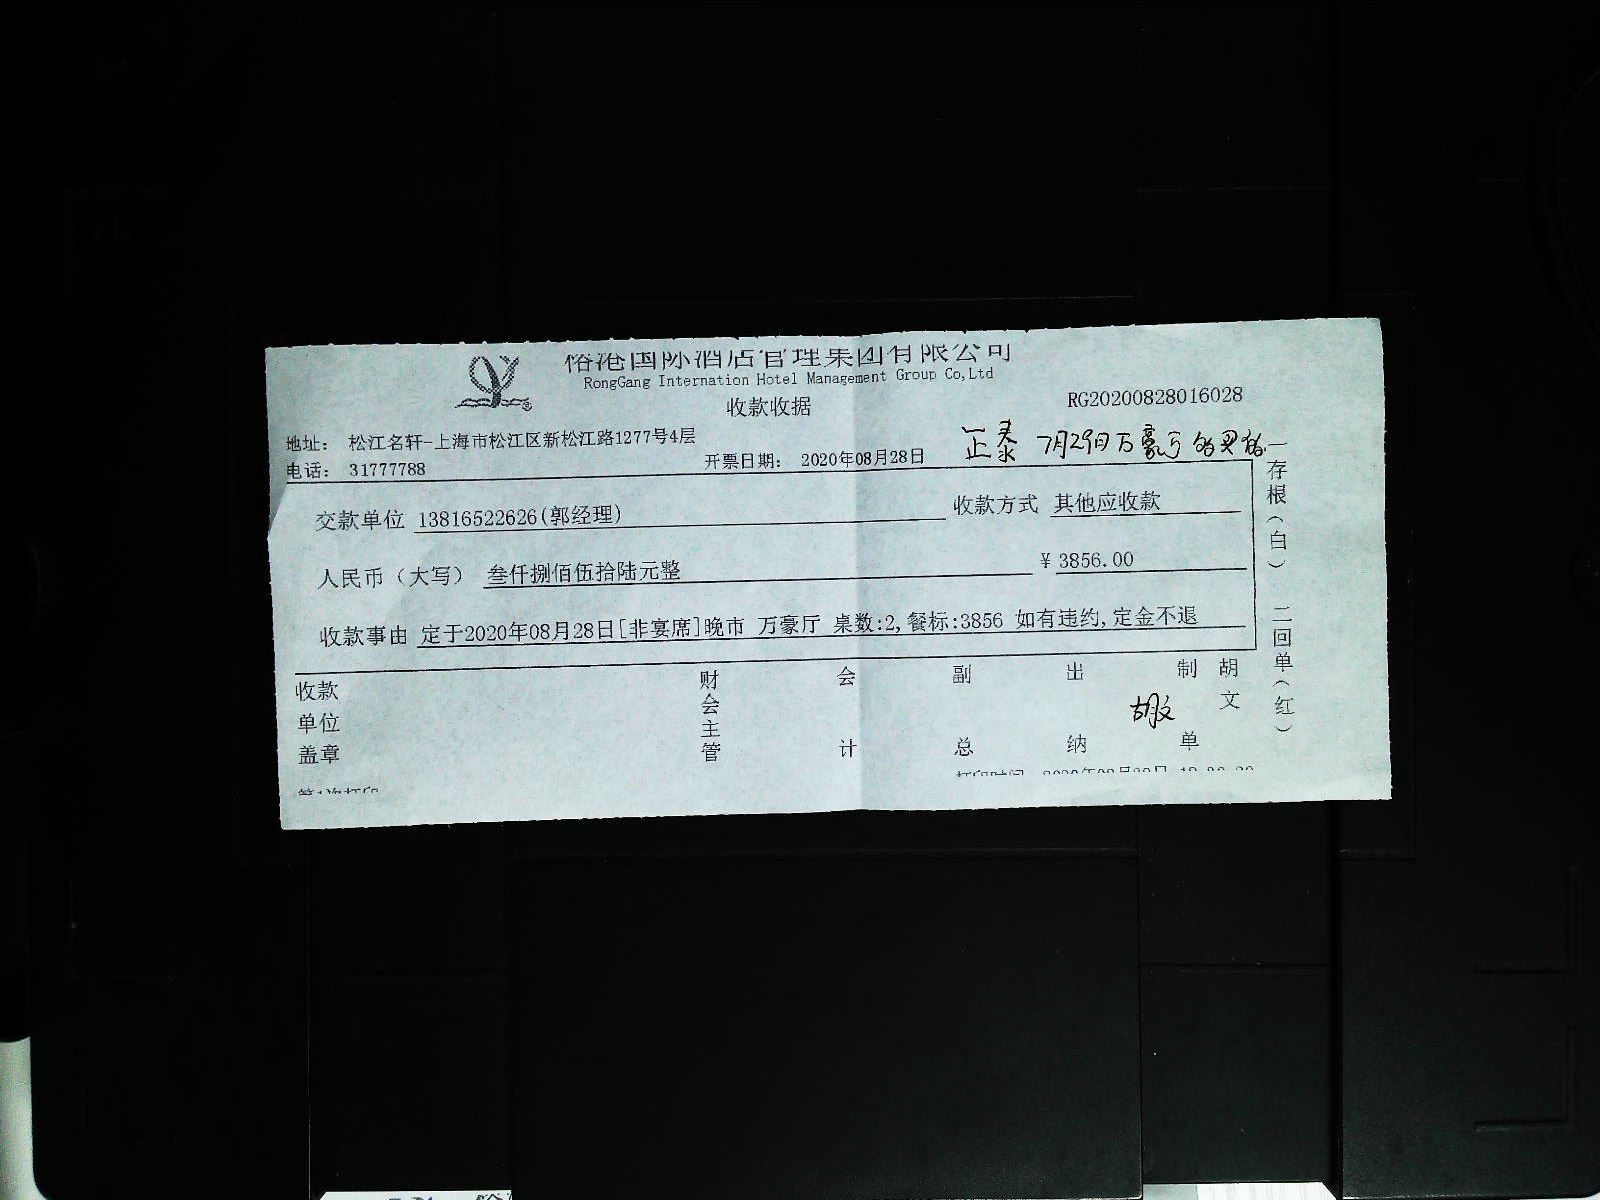 俗港国际酒店管理集团有限公司
RongGang Internation Hotel Management Group Co,Ltd
收款收据
RG20200828016028
地址： 松江名轩-上海市松江区新松江路1277号4层
电话： 31777788
开票日期： 2020年08月28日
正泰 7月29日万豪厅
交款单位 13816522626(郭经理)
收款方式 其他应收款
人民币（大写） 叁仟捌佰伍拾陆元整
¥ 3856.00
收款事由 定于2020年08月28日[非宴席]晚市 万豪厅 桌数:2,餐标:3856 如有违约,定金不退
一存根（白） 二回单（红）
收款单位盖章
财会主管
会计
副总
出纳
制单
胡文
胡文